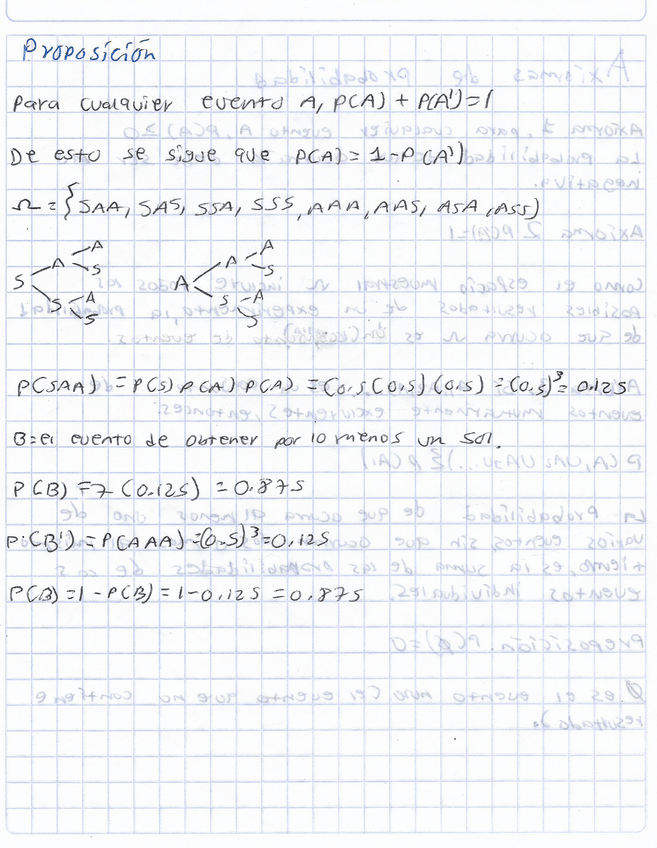 Proposición
Para cualquier evento A, P(A) + P(A')=1
De esto se sigue que P(A)= 1-P(A')
Ω = {SAA, SAS, SSA, SSS, AAA, AAS, ASA, ASS)
A A
A S A S
S A
S A S A
S S
P(SAA) = P(S) P(A) P(A) = (0.5(0.5)(0.5) = (0.5)³= 0.125
B=el evento de obtener por lo menos un sol.
P(B) =7(0.125) = 0.875
P(B') = P(AAA) =(0.5)³=0.125
P(B)=1-P(B)=1-0.125 = 0.875